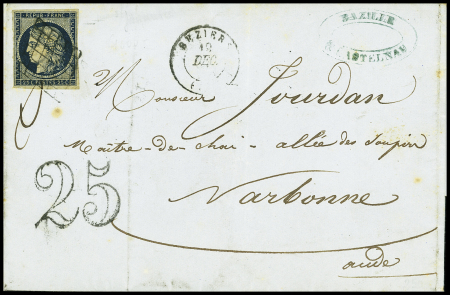 REPUB. FRANC.
BEZIERS
12
DEC.
BAZILLE
A CASTELNAU
Monsieur Jourdan
Maitre-de-chai - allée des Soupirs
Narbonne
aude
25